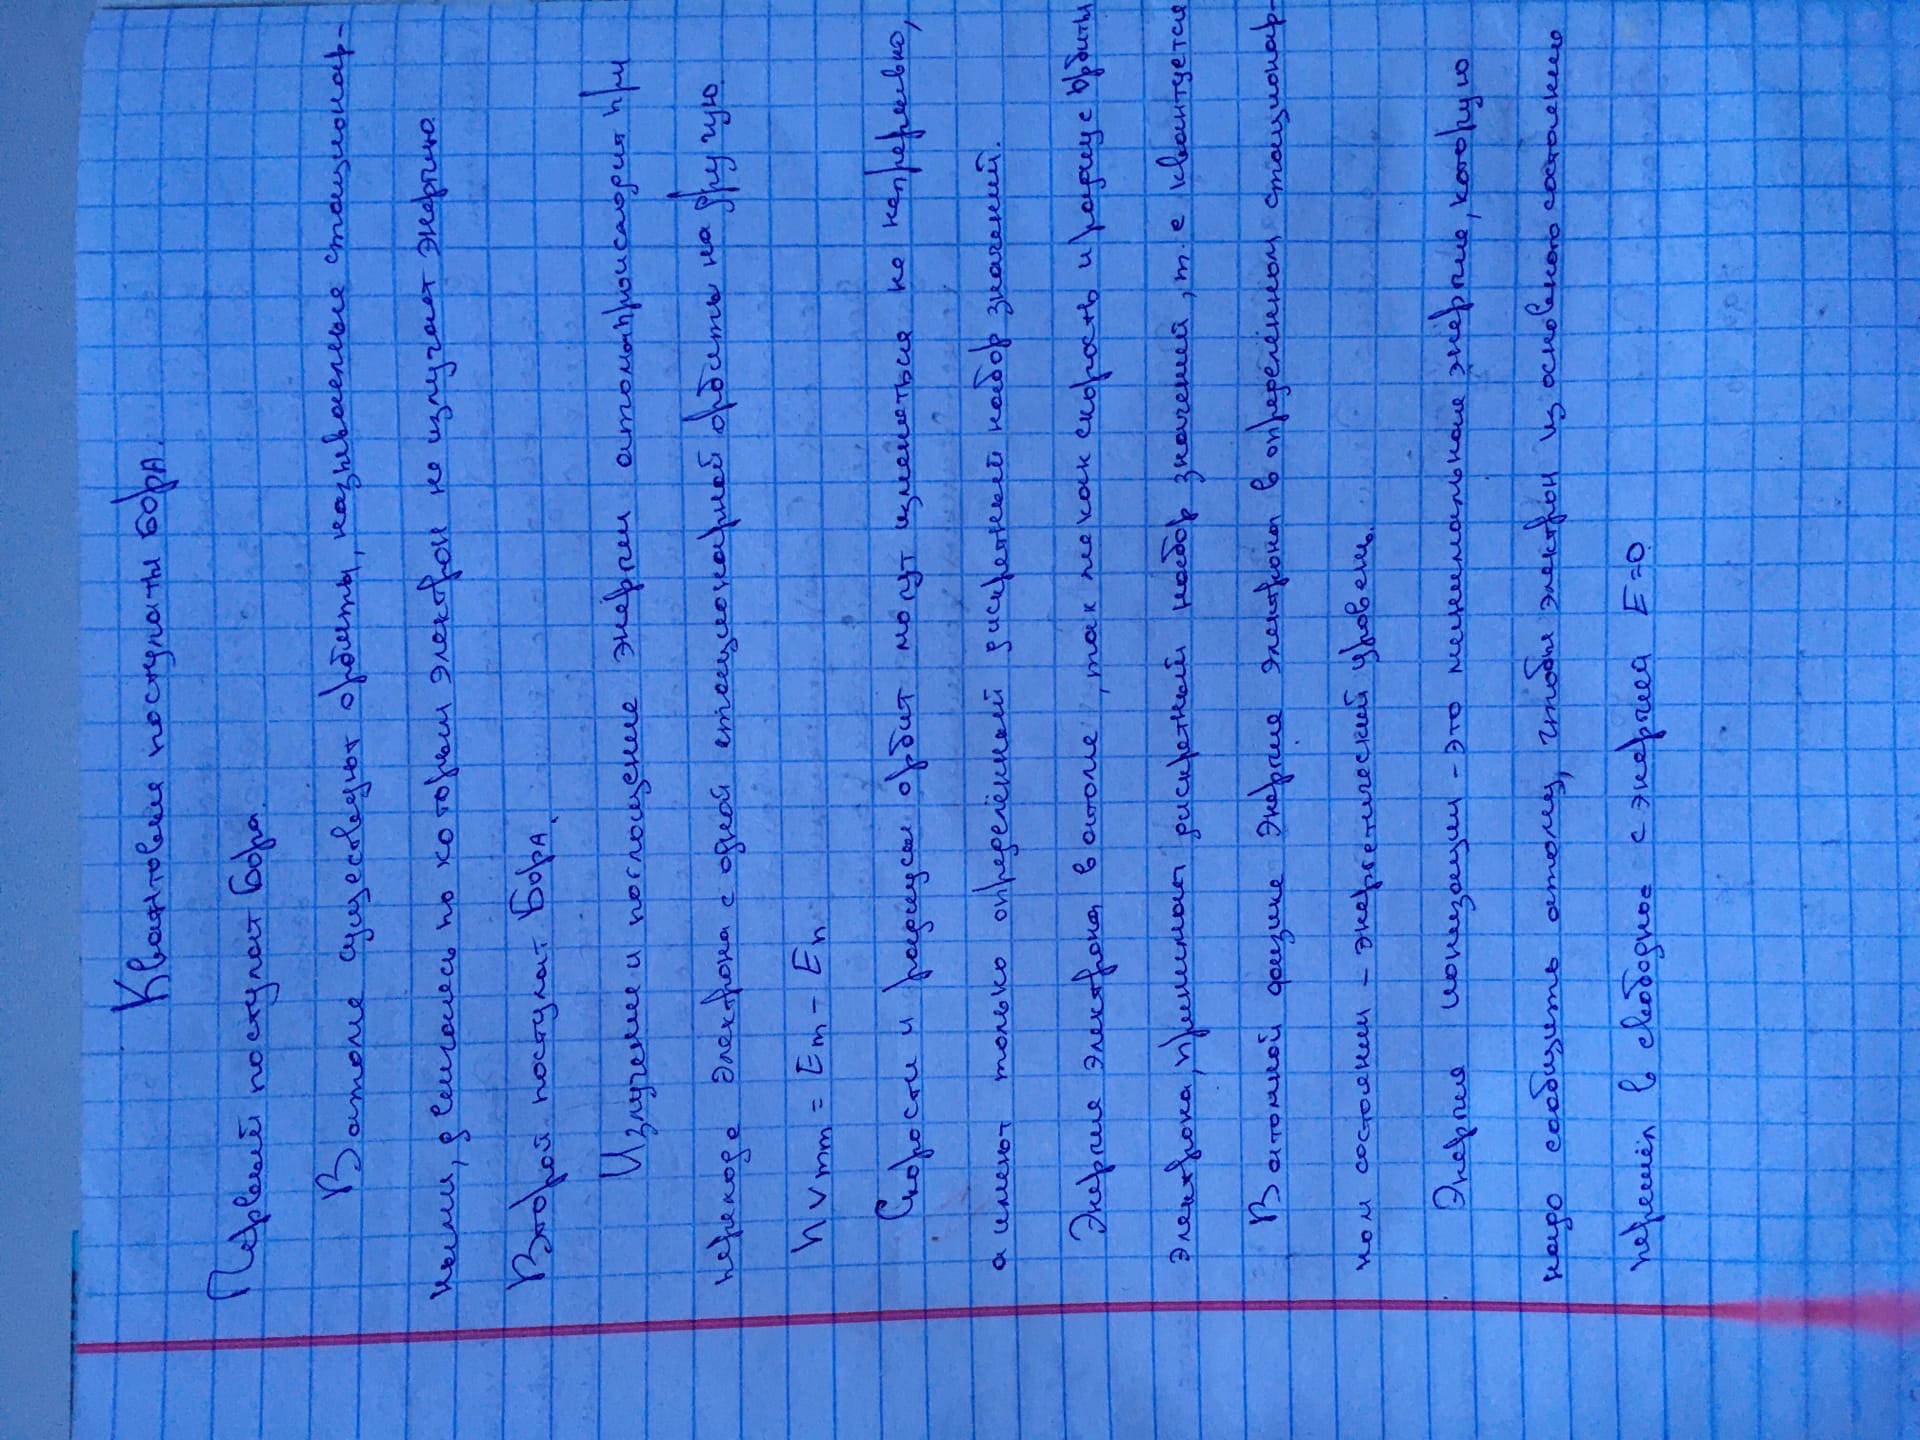 Квантовые постулаты Бора.
Первый постулат Бора.
В атоме существуют орбиты, называемые стационар-
ными, двигаясь по которым электрон не излучает энергию.
Второй постулат Бора.
Излучение и поглощение энергии атома происходит при
переходе электрона с одной стационарной орбиты на другую.
hνmm = Em - En
Скорости и радиусы орбит могут изменяться не непрерывно,
а имеют только определённый дискретный набор значений.
Энергия электрона в атоме, так же как скорость и радиус орбиты
электрона, принимает дискретный набор значений, т. е квантуется
В атомной физике энергия электрона в определённом стационар-
ном состоянии - энергетический уровень.
Энергия ионизации - это минимальная энергия, которую
надо сообщить атому, чтобы электрон из основного состояния
перешёл в свободное с энергией E=0